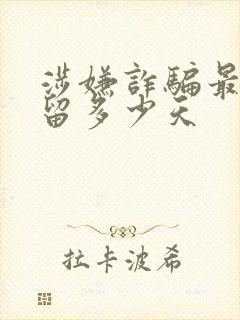 涉嫌詐騙最
留多少天
拉卡波希